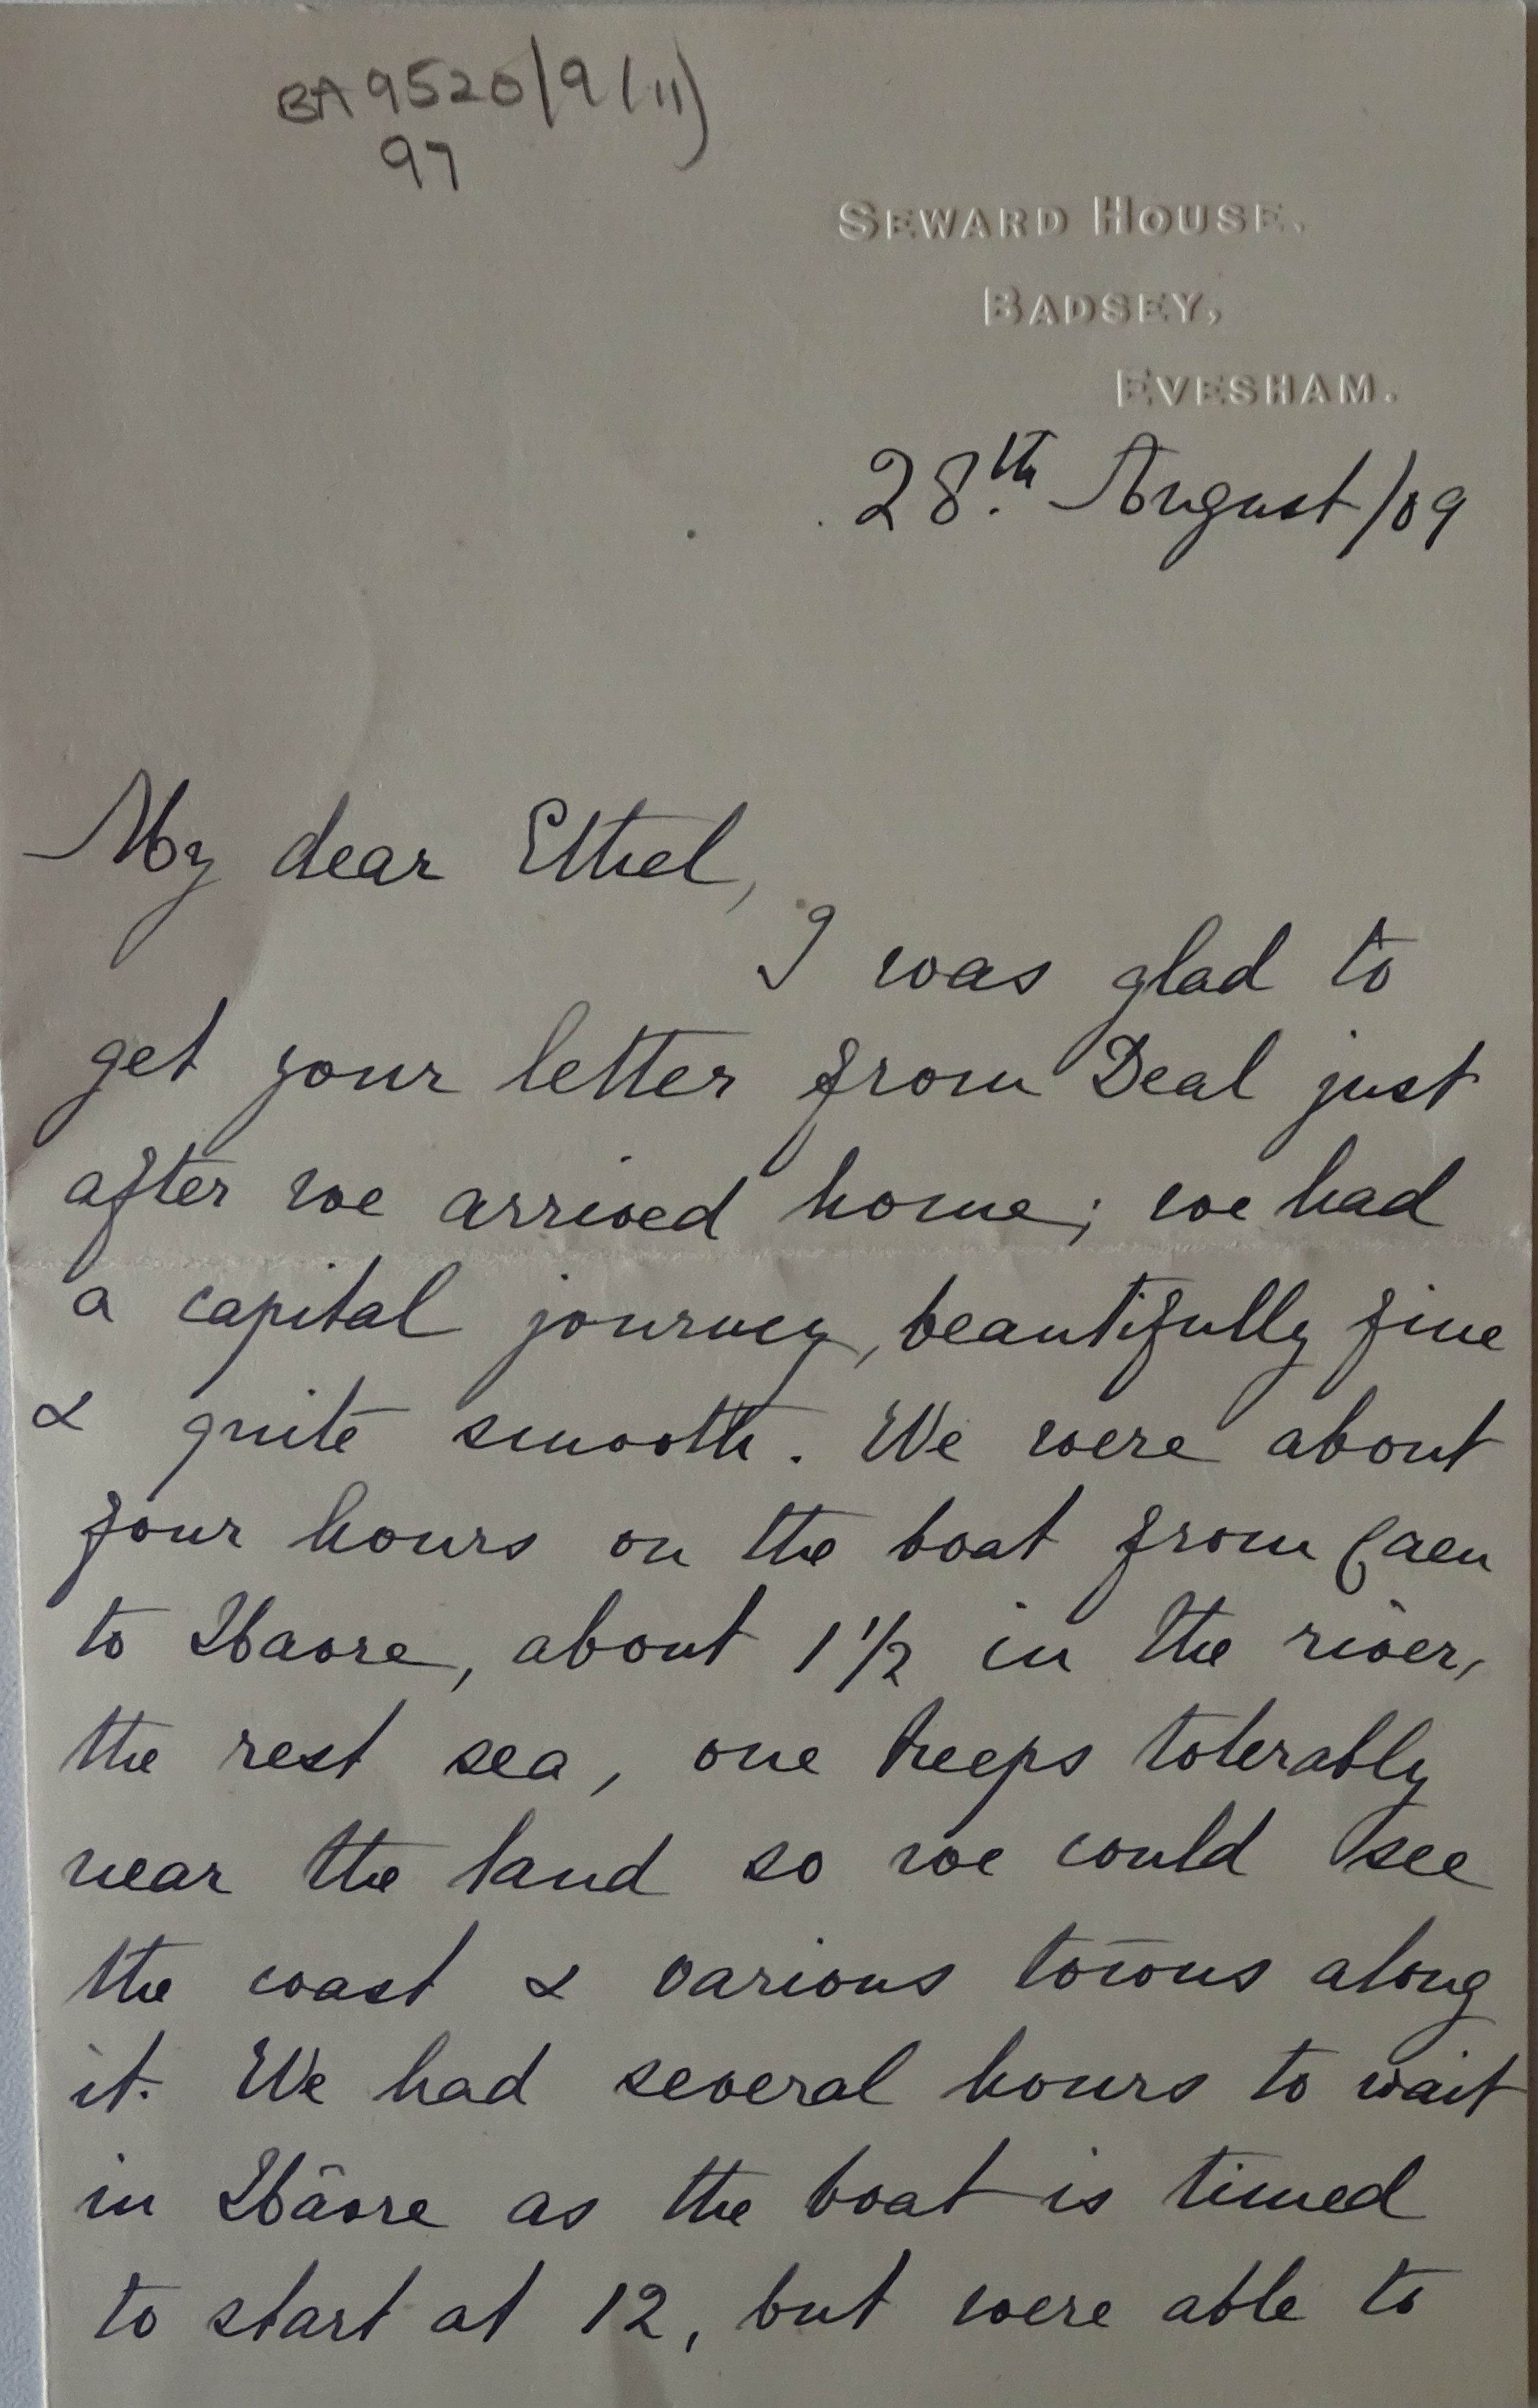 BA 9520/9(11)
97
SEWARD HOUSE.
BADSEY,
EVESHAM.
28.th August/09
My dear Ethel,
I was glad to
get your letter from Deal just
after we arrived home; we had
a capital journey, beautifully fine
& quite smooth. We were about
four hours on the boat from Caen
to Havre, about 1 1/2 in the river,
the rest sea, one keeps tolerably
near the land so we could see
the coast & various towns along
it. We had several hours to wait
in Hâvre as the boat is timed
to start at 12, but were able to